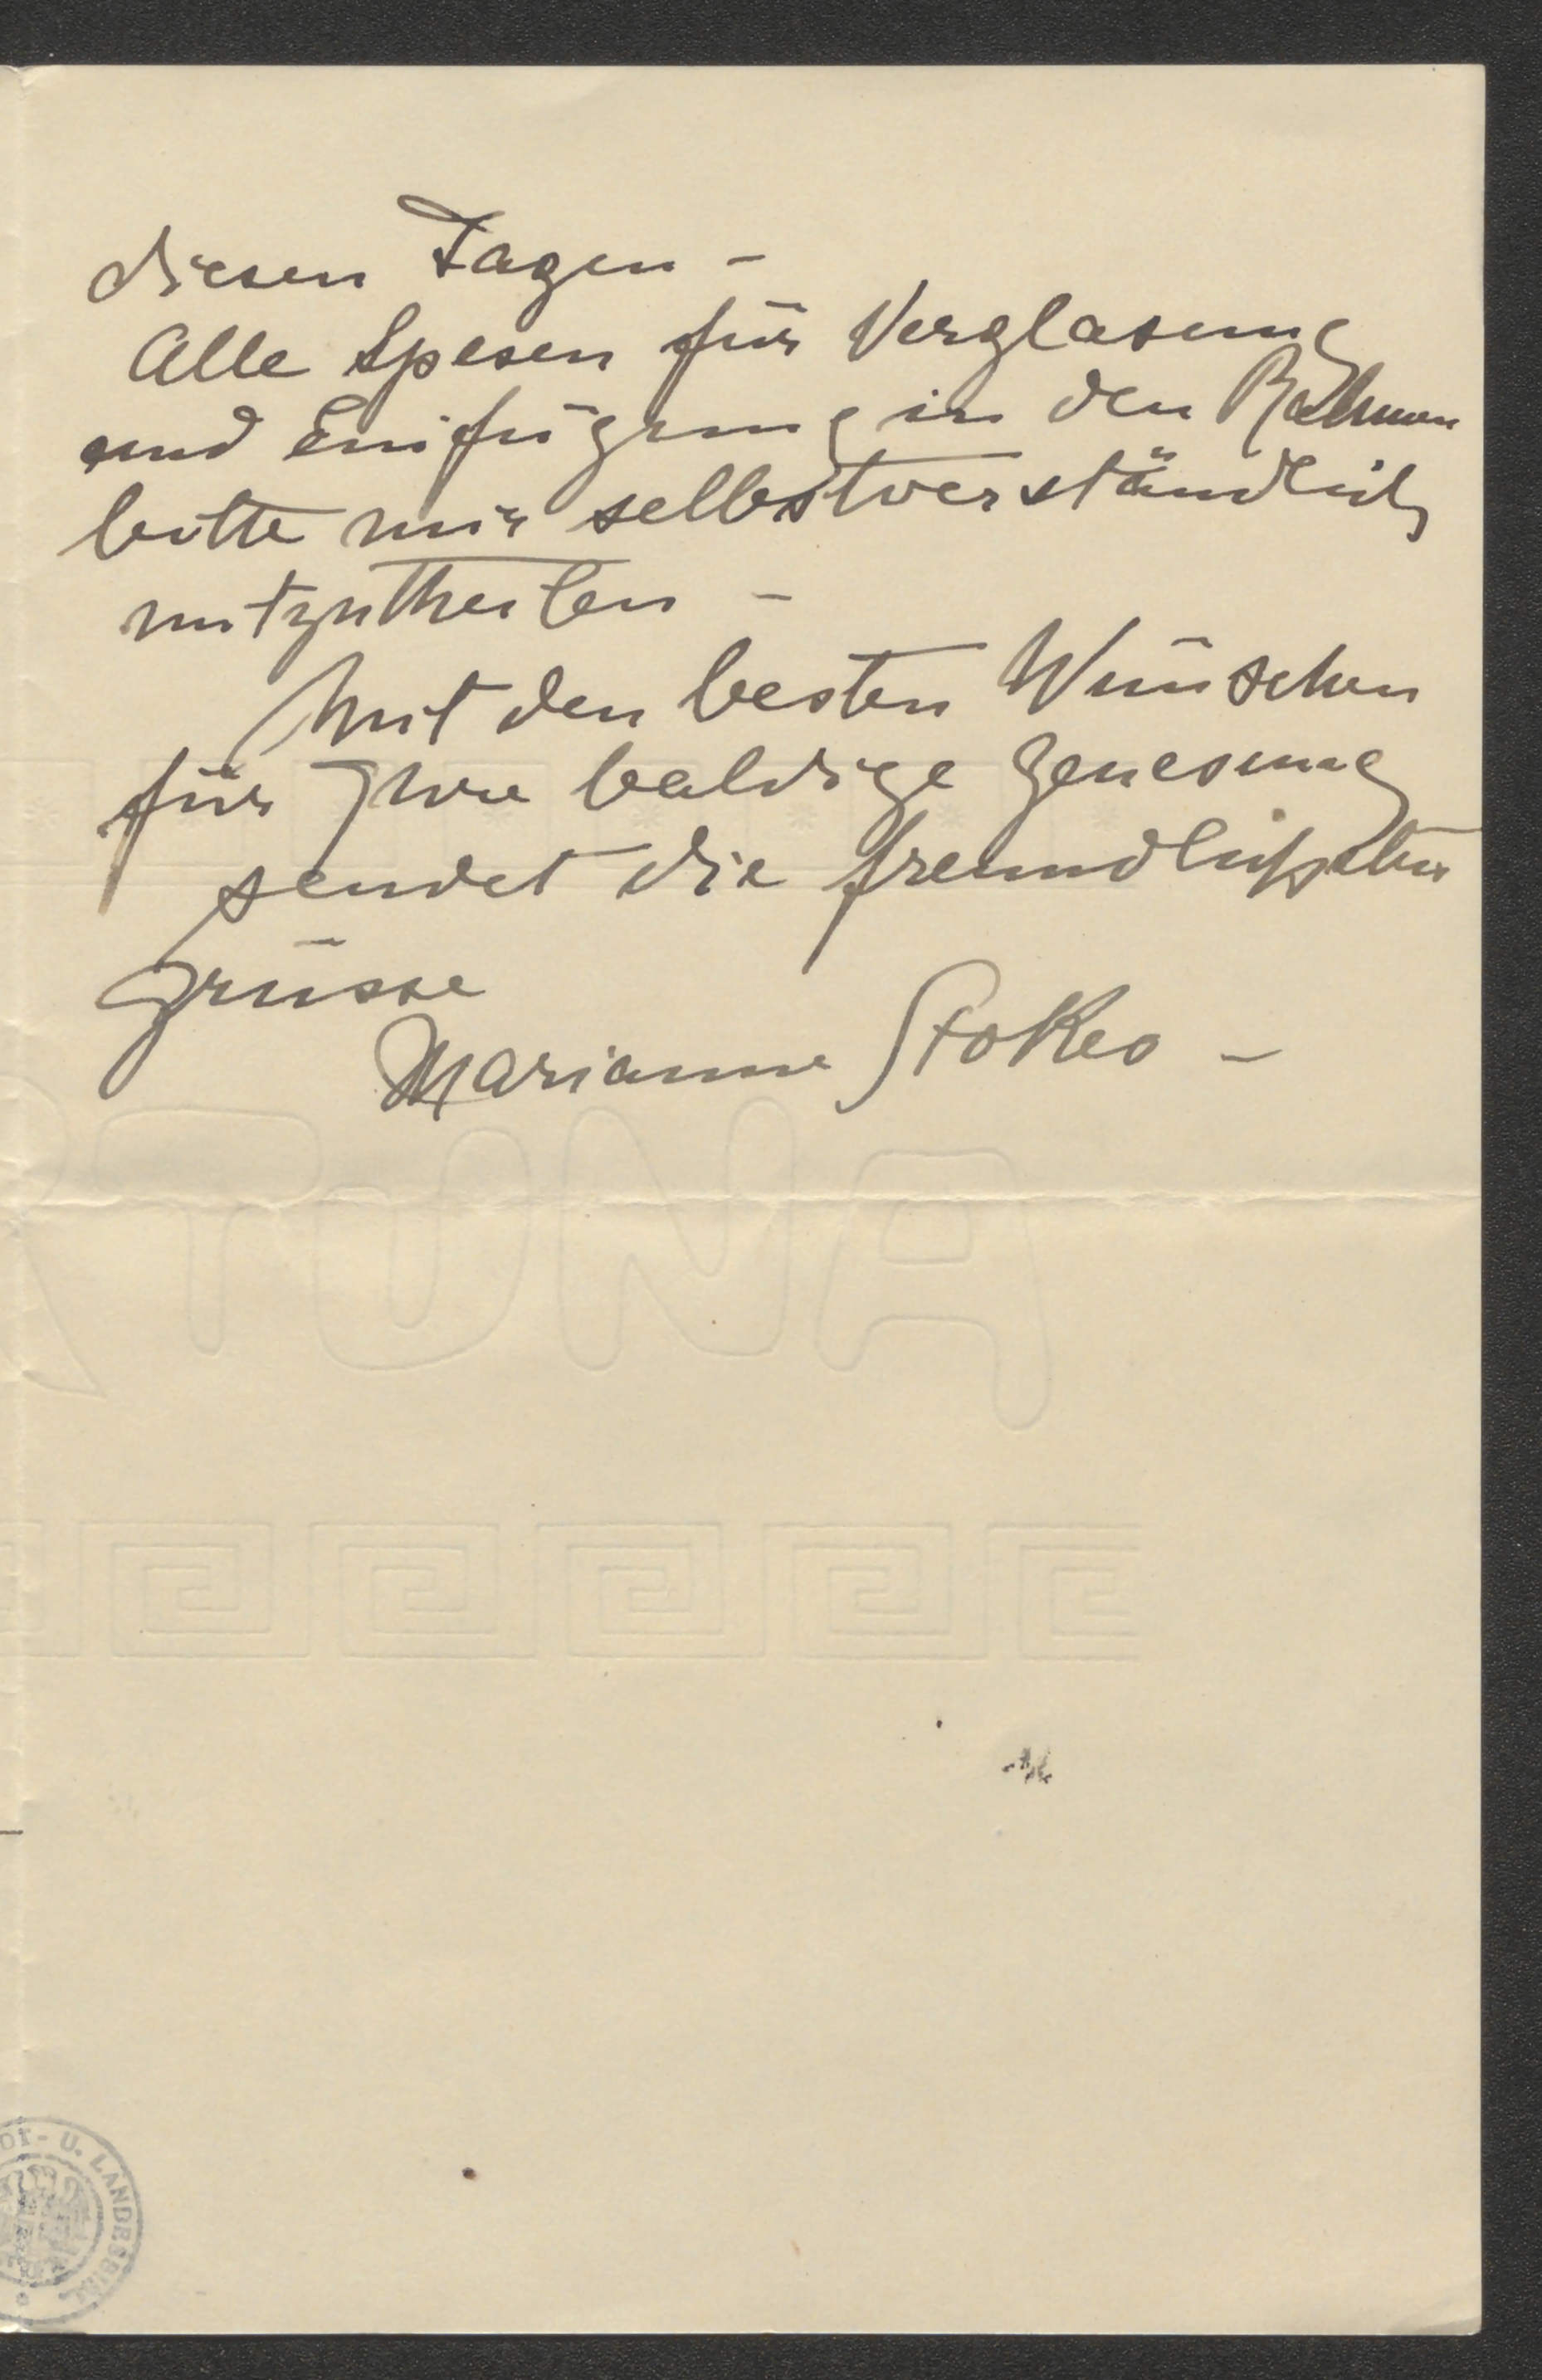 diesen Tagen –
Alle Spesen für Verglasung
und Einfügung in den Rahmen
bitte mir selbstverständlich
mitzutheilen –
Mit den besten Wünschen
für Ihre baldige Genesung
sendet die freundlichsten
Grüsse
Marianne Stokes –
RTUNA
- U. LANDESBIB